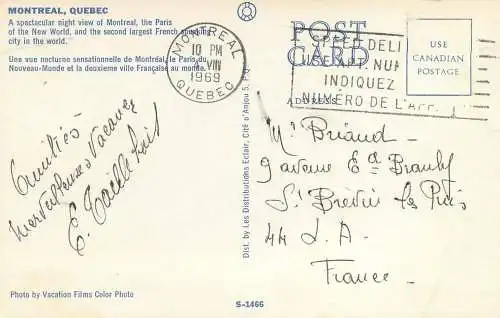 MONTREAL, QUEBEC
A spectacular night view of Montreal, the Paris
of the New World, and the second largest French speaking
city in the world.
Une vue nocturne sensationnelle de Montréal, le Paris du
Nouveau-Monde et la deuxième ville Française au monde.
MONTREAL
10 PM
VIII
1969
QUEBEC
POST
CARD
SPEED DELI
USE APT. NUM
INDIQUEZ
NUMÉRO DE L'APP.
ADDRESS
USE
CANADIAN
POSTAGE
Amitiés
Merveilleuses vacances
E.
Dist. by Les Distributions Eclair, Cité d'Anjou 5, P.Q.
Mr Briand
9 avenue Ed Branly
St Brévin les Pins
44 L. A.
France
Photo by Vacation Films Color Photo
S-1466